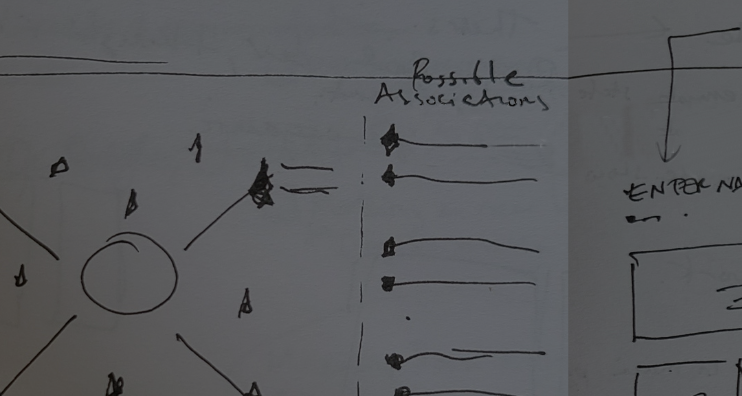 Possible
Associations
ENTER NA